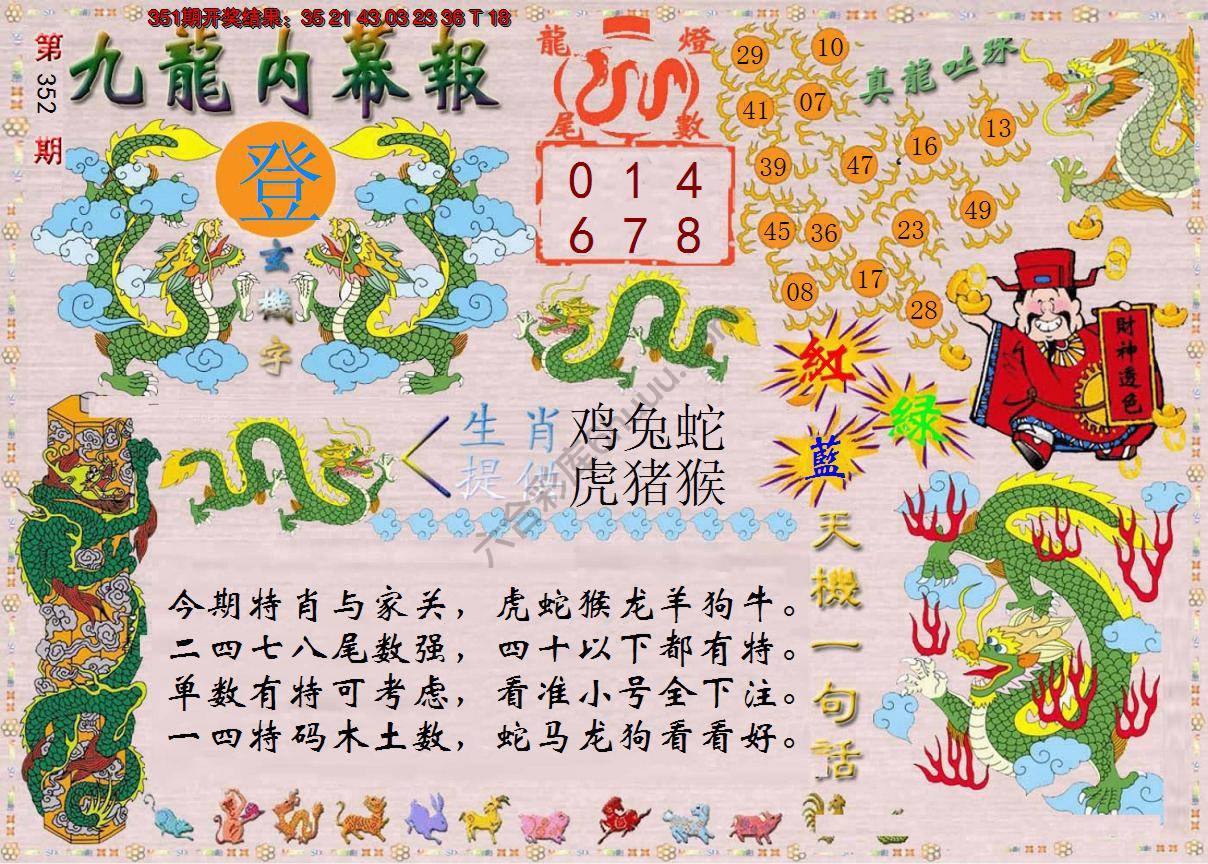 351期开奖结果：35 21 43 03 23 36 T 18
第352期
九龍内幕報
登
玄機字
龍燈
尾數
0 1 4
6 7 8
真龍吐珠
29 10
41 07
39 47 16 13
45 36 23 49
08 17 28
財神透色
紅
綠
藍
生肖 鸡兔蛇
提供 虎猪猴
六合彩库
天機一句話
今期特肖与家关，虎蛇猴龙羊狗牛。
二四七八尾数强，四十以下都有特。
单数有特可考虑，看准小号全下注。
一四特码木土数，蛇马龙狗看看好。